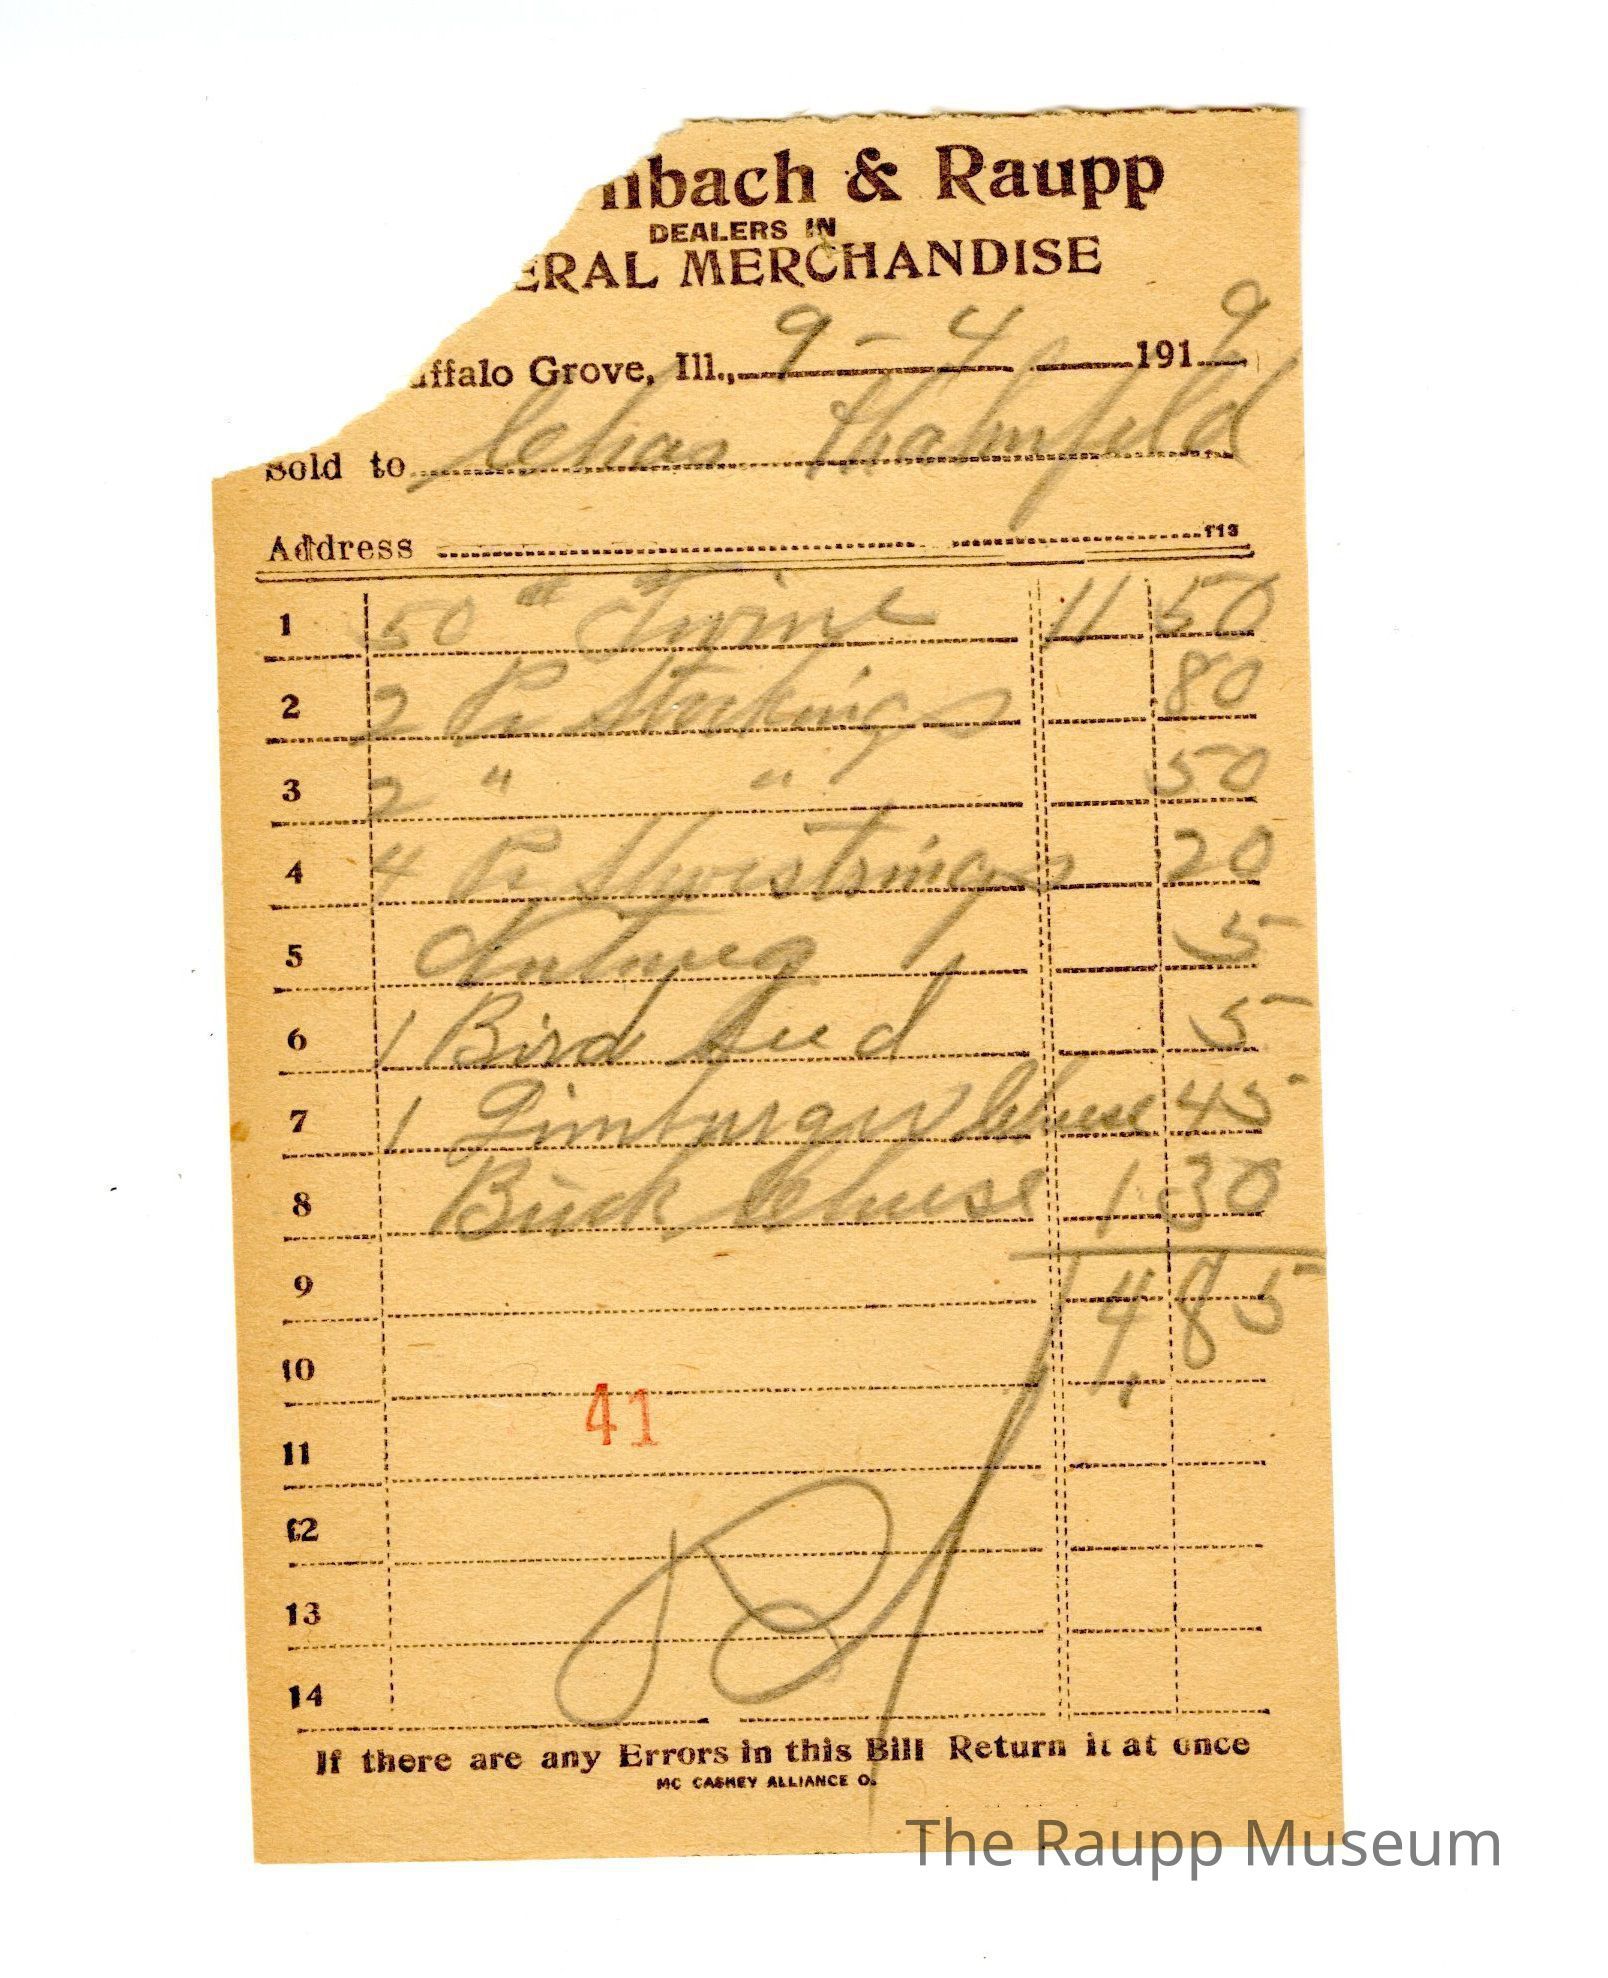 nbach & Raupp
DEALERS IN
ERAL MERCHANDISE
uffalo Grove, Ill., 9 - 4 1919
Sold to Chas
Address 113
1 50 # Twine 11 50
2 2 Pr Stockings 80
3 2 " " 50
4 4 Pr Shoestrings 20
5 Nutmeg 5
6 1 Bird Seed 5
7 1 Limburger Cheese 45
8 Brick Cheese 1 30
9 14.85
10
41
11
12
13
14
If there are any Errors in this Bill Return it at once
MC CASKEY ALLIANCE O.
The Raupp Museum